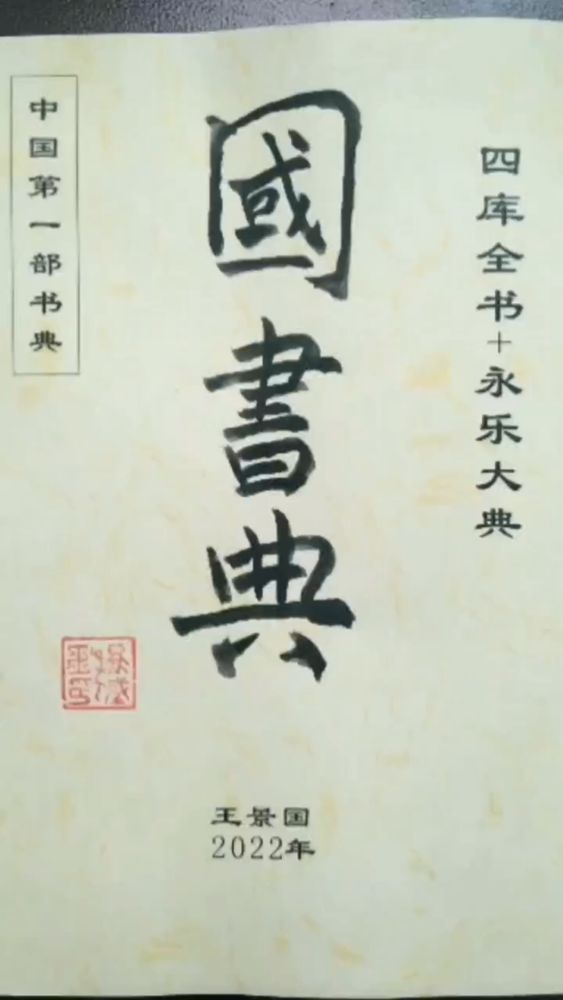 四库全书+永乐大典
國書典
中国第一部书典
王景国
2022年